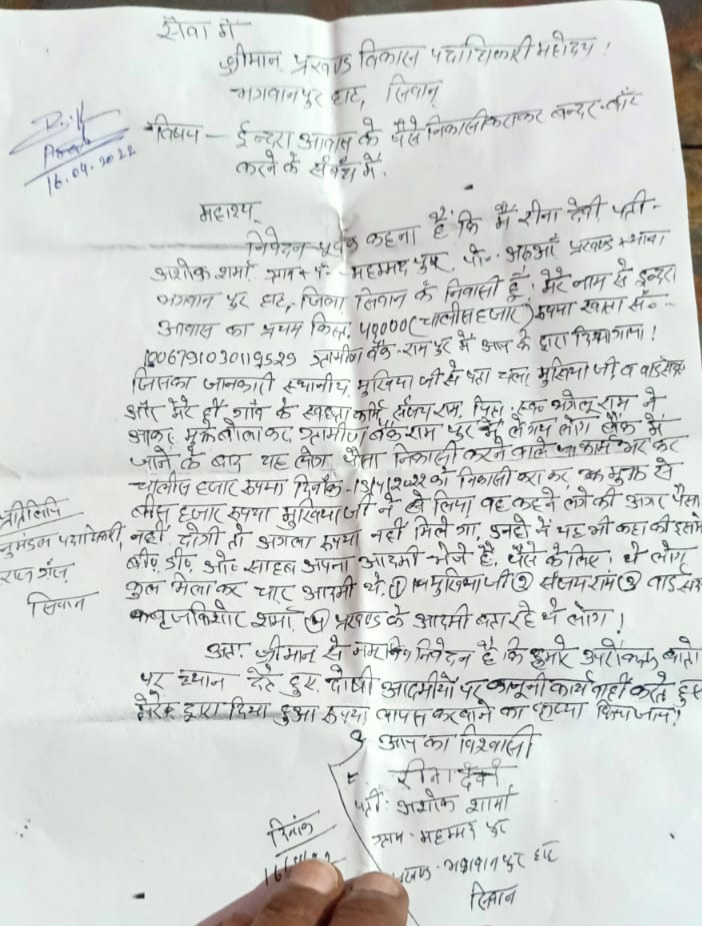 सेवा में
श्रीमान् प्रखण्ड विकास पदाधिकारी महोदय!
भगवानपुर हाट, सिवान्
16.04.2022
विषय - ईन्दरा आवास के पैसे निकासी कराकर बन्दर-बाँट
करने के संबंध में.
महाशय्
निवेदन पूर्वक कहना है कि मैं रीना देवी पती-
अशोक शर्मा ग्राम+पं- महम्मद पुर, पो-. प्रखण्ड + थाना
भगवान पुर हाट, जिला सिवान के निवासी हूँ. मेरे नाम से इन्दरा
आवास का प्रथम किस्त. 40000 (चालीस हजार) रूपया खाता सं०-
ग्रामीण बैंक-राम पुर में आप के द्वारा दिया गया!
जिसका जानकारी स्थानीय मुखिया जी से पता चला, मुखिया जी, व वार्ड
और मेरे ही गाँव के स्वछता कर्मि संजय राम, पिता-स्व० राम ने
आकर मुझे बोला कर ग्रामीण बैंक राम पुर में ले गया लोग बैंक में
जाने के बाद यह लोग पैसा निकासी करने वाले फार्म भर कर
चालीस हजार रूपया दिनांक-13/4/2022 को निकासी करा कर, मुझ से
बीस हजार रूपया मुखिया जी ने ले लिया वह कहने लगे की अगर पैसा
नहीं दोगी तो अगला रूपया नहीं मिले गा. उन्हों ने यह भी कहा की इसमें
बी०डी०ओ० साहब अपना आदमी भेजे हैं. पैसे के लिए, ये लोग
कुल मिला कर चार आदमी थे. ① मुखिया जी ② संजय राम ③ वार्ड
बृजकिशोर शर्मा. ④ प्रखण्ड के आदमी बता रहे थे लोग!
प्रतिलिपि
अनुमंडल पदाधिकारी,
सिवान
अतः श्रीमान से नम्र निवेदन है कि हमारे उपरोक्त बातों
पर ध्यान देते हुए. दोषी आदमीयों पर कानूनी कार्यवाही करते हुए
मेरे द्वारा दिया हुआ रूपया वापस करवाने का कृप्या किया जाय!
आप का विश्वासी
रीना देवी
पती- अशोक शर्मा
ग्राम- महम्मद पुर
भगवान पुर हाट
सिवान
दिनांक